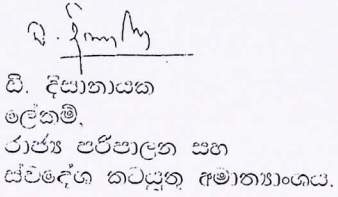 ඩී. දිසානායක
ලේකම්,
රාජ්‍ය පරිපාලන සහ
ස්වදේශ කටයුතු අමාත්‍යාංශය.